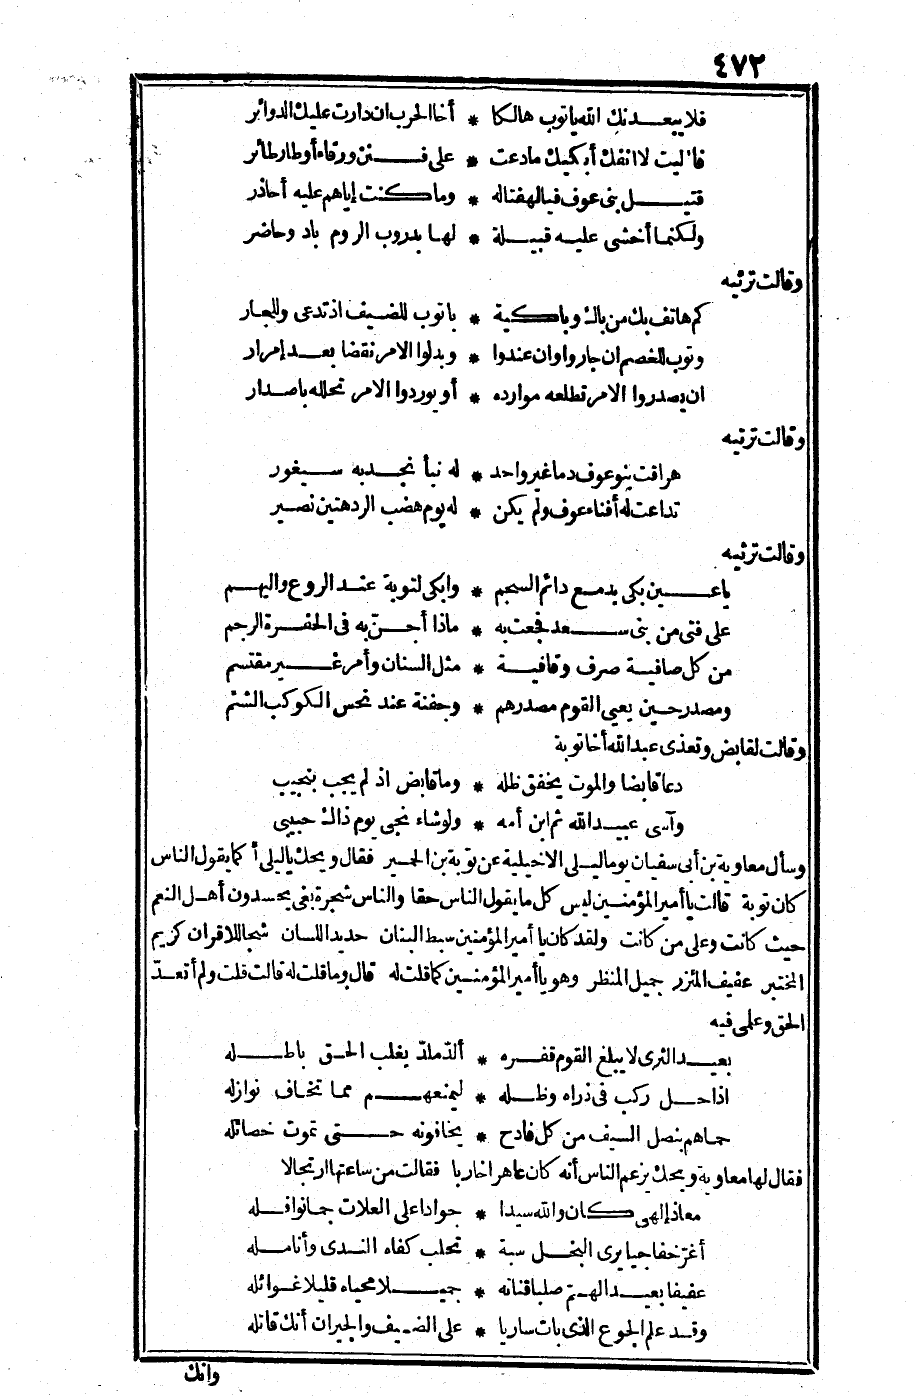 ٤٧٢
فلا يبعدنك الله يا توب هالكا * أخا الحرب ان دارت عليك الدوائر
فآليت لا انفك أبكيك ما دعت * على فنن ورقاء أو طار طائر
قتيل بنى عوف فيالهفتاله * وما كنت إياهم عليه أحاذر
ولكنما أخشى عليه قبيلة * لها بدروب الروم باد وحاضر
وقالت ترثيه
كم هاتف بك من باك وباكية * يا توب للضيف اذ تدعى وللجار
وتوب للخصم ان جاروا وان عندوا * وبدلوا الامر نقضا بعد إمرار
ان يصدروا الامر تطلعه موارده * أو يوردوا الامر تحلله باصدار
وقالت ترثيه
هراقت بنو عوف دما غير واحد * له نبأ نجديه سيغور
تداعت له أفناء عوف ولم يكن * له يوم هضب الردهتين نصير
وقالت ترثيه
يا عين بكى بدمع دائم السجم * وابكى لتوبة عند الروع والبهم
على فتى من بنى سعد فجعت به * ماذا أجن به فى الحفرة الرجم
من كل صافية صرف وقافية * مثل السنان وأمر غير مقتسم
ومصدر حين يعيى القوم مصدرهم * وجفنة عند نحس الكوكب الشتم
وقالت لقابض وتعذى عبد الله أخا توبة
دعا قابضا والموت يخفق ظله * وما قابض اذ لم يجب بنجيب
وآسى عبيد الله ثم ابن أمه * ولو شاء نجى يوم ذاك حبيبى
وسأل معاوية بن أبى سفيان يوما ليلى الاخيلية عن توبة بن الحمير فقال ويحك يا ليلى أكما يقول الناس
كان توبة قالت يا أمير المؤمنين ليس كل ما يقول الناس حقا والناس شجرة بغى يحسدون أهل النعم
حيث كانت وعلى من كانت ولقد كان يا أمير المؤمنين سبط البنان حديد اللسان شجا للاقران كريم
المختبر عفيف المئزر جميل المنظر وهو يا أمير المؤمنين كما قلت له قال وما قلت له قالت قلت ولم أتعد
الحق وعلمى فيه
بعيد الثرى لا يبلغ القوم قفره * ألد ملد يغلب الحق باطله
اذا حل ركب فى ذراه وظله * ليمنعهم مما تخاف نوازله
حماهم بنصل السيف من كل فادح * يخافونه حتى تموت خصائله
فقال لها معاوية ويحك يزعم الناس أنه كان عاهرا خاربا فقالت من ساعتها ارتجالا
معاذ إلهى كان والله سيدا * جوادا على العلات جما نوافله
أغر خفاجيا يرى البخل سبة * تحلب كفاه الندى وأنامله
عفيفا بعيد الهم صلبا قناته * جميلا محياه قليلا غوائله
وقد علم الجوع الذى بات ساريا * على الضيف والجيران أنك قاتله
وانك